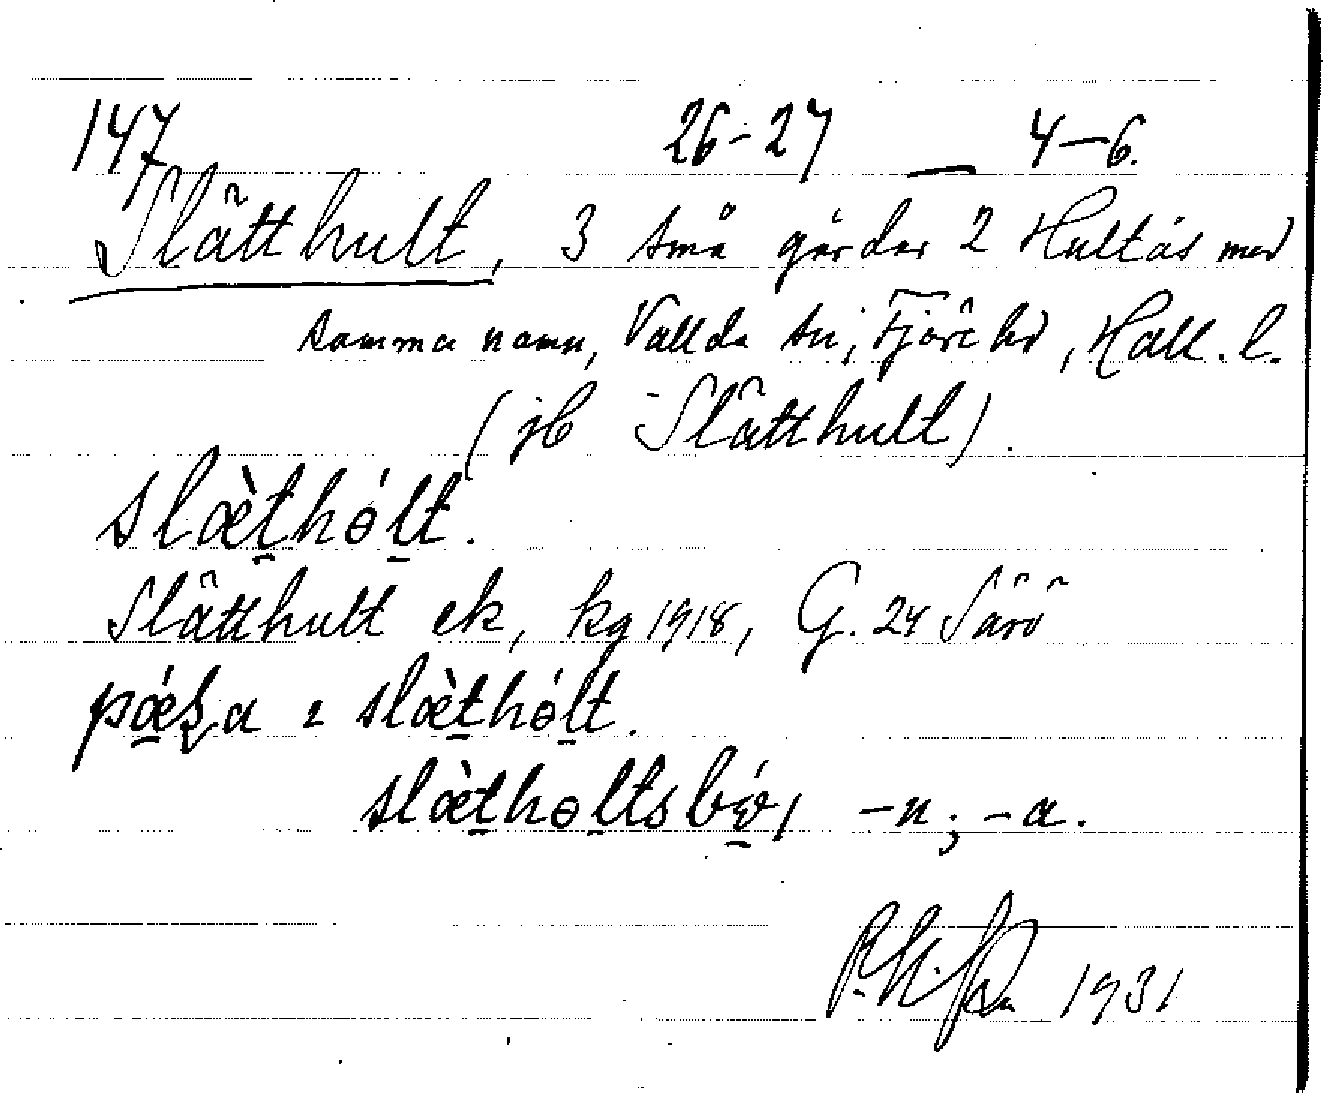 147 26-27 — 4-6.
Slätthult, 3 små gårdar 2 Hultås med
samma namn, Vallda sn, Fjäre hd, Hall. l.
(jb Slätthult).
slæ̀thólt.
Slätthult ek, kg 1918, G. 24 Särö
ı slæ̀thólt.
slæ̀tholtsbý, -n; -a.
1931